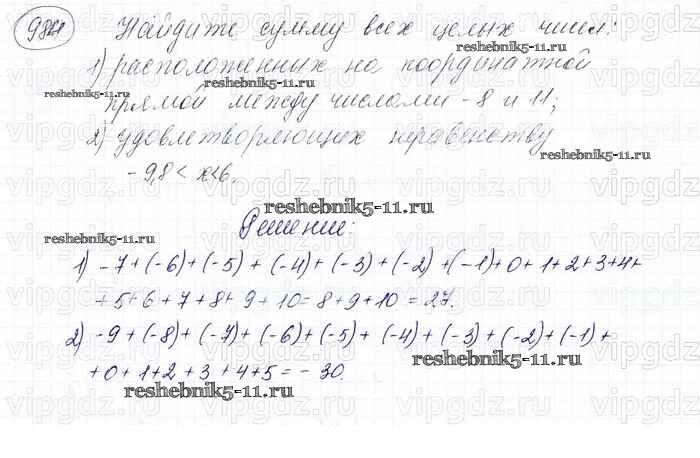 984 Найдите сумму всех целых чисел:
reshebnik5-11.ru
1) расположенных на координатной
reshebnik5-11.ru
прямой между числами -8 и 11;
2) удовлетворяющих неравенству
reshebnik5-11.ru
-9,8 < x<6.
reshebnik5-11.ru
Решение:
reshebnik5-11.ru
1) -7+(-6)+(-5)+(-4)+(-3)+(-2)+(-1)+0+1+2+3+4+
+5+6+7+8+9+10=8+9+10=27.
2) -9+(-8)+(-7)+(-6)+(-5)+(-4)+(-3)+(-2)+(-1)+
reshebnik5-11.ru
+0+1+2+3+4+5=-30.
reshebnik5-11.ru
vipgdz.ru